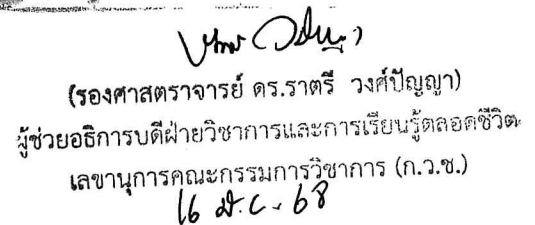 (รองศาสตราจารย์ ดร.ราตรี วงศ์ปัญญา)
ผู้ช่วยอธิการบดีฝ่ายวิชาการและการเรียนรู้ตลอดชีวิต
เลขานุการคณะกรรมการวิชาการ (ก.ว.ช.)
16 มิ.ย. 68